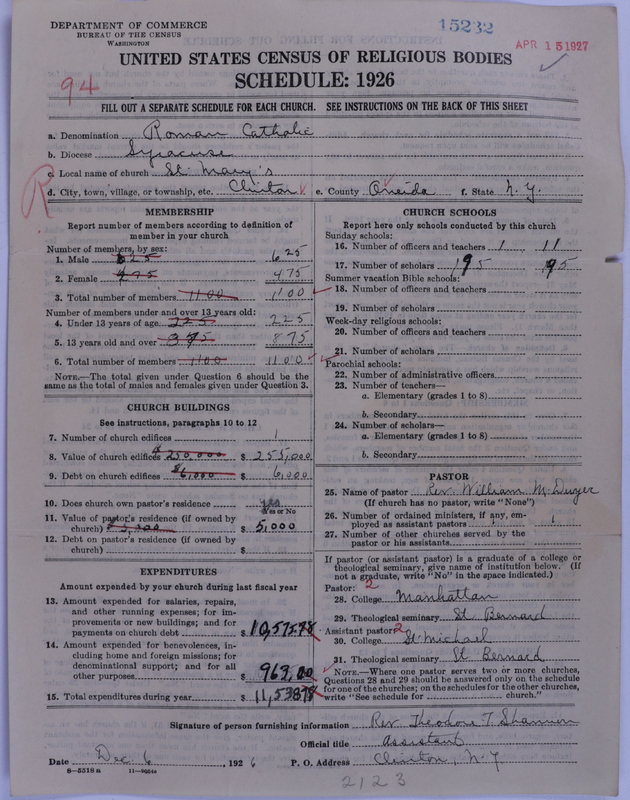 DEPARTMENT OF COMMERCE
BUREAU OF THE CENSUS
WASHINGTON
15232
APR 15 1927
UNITED STATES CENSUS OF RELIGIOUS BODIES
SCHEDULE: 1926
94
FILL OUT A SEPARATE SCHEDULE FOR EACH CHURCH. SEE INSTRUCTIONS ON THE BACK OF THIS SHEET
a. Denomination Roman Catholic
b. Diocese Syracuse
c. Local name of church St. Mary's
R
d. City, town, village, or township, etc. Clinton e. County Oneida f. State N.Y.
MEMBERSHIP
Report number of members according to definition of
member in your church
Number of members, by sex:
1. Male 625 625
2. Female 475 475
3. Total number of members 1100 1100
Number of members under and over 13 years old:
4. Under 13 years of age 225 225
5. 13 years old and over 875 875
6. Total number of members 1100 1100
NOTE.—The total given under Question 6 should be the
same as the total of males and females given under Question 3.
CHURCH BUILDINGS
See instructions, paragraphs 10 to 12
7. Number of church edifices 1
8. Value of church edifices $250,000 $255,000
9. Debt on church edifices $6,000 $6,000
10. Does church own pastor's residence yes
Yes or No
11. Value of pastor's residence (if owned by
church) $5,000
12. Debt on pastor's residence (if owned by
church) $
EXPENDITURES
Amount expended by your church during last fiscal year
13. Amount expended for salaries, repairs,
and other running expenses; for im-
provements or new buildings; and for
payments on church debt $10,575.78
14. Amount expended for benevolences, in-
cluding home and foreign missions; for
denominational support; and for all
other purposes $963.00
15. Total expenditures during year $11,53878
CHURCH SCHOOLS
Report here only schools conducted by this church
Sunday schools:
16. Number of officers and teachers 11
17. Number of scholars 195 195
Summer vacation Bible schools:
18. Number of officers and teachers
19. Number of scholars
Week-day religious schools:
20. Number of officers and teachers
21. Number of scholars
Parochial schools:
22. Number of administrative officers
23. Number of teachers—
a. Elementary (grades 1 to 8)
b. Secondary
24. Number of scholars—
a. Elementary (grades 1 to 8)
b. Secondary
PASTOR
25. Name of pastor Rev. William M. Dwyer
(If church has no pastor, write "None")
26. Number of ordained ministers, if any, em-
ployed as assistant pastors 1 1
27. Number of other churches served by the
pastor or his assistants
If pastor (or assistant pastor) is a graduate of a college or
theological seminary, give name of institution below. (If
not a graduate, write "No" in the space indicated.)
Pastor: 2
28. College Manhattan
29. Theological seminary St Bernard
Assistant pastor: 2
30. College St Michael
31. Theological seminary St Bernard
NOTE.—Where one pastor serves two or more churches,
Questions 28 and 29 should be answered only on the schedule
for one of the churches; on the schedules for the other churches,
write "See schedule for church."
Signature of person furnishing information Rev. Theodore T. Shannon
Official title Assistant
Date Dec 6, 1926 P. O. Address Clinton, N.Y.
8—5516 a
2123